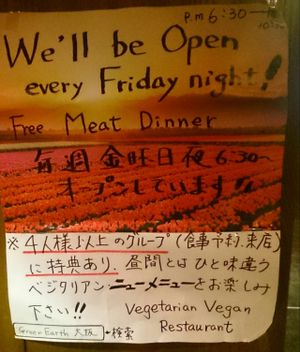 P.m 6:30〜
We'll be Open
every Friday night!
Free Meat Dinner
毎週金曜日夜6:30〜
オープンしています!!
※4人様以上のグループ(食事予約.来店)
に特典あり. 昼間とは ひと味違う
ベジタリアン・ニューメニューをお楽しみ
下さい!! Vegetarian Vegan
Green Earth 大阪 ←検索 Restaurant